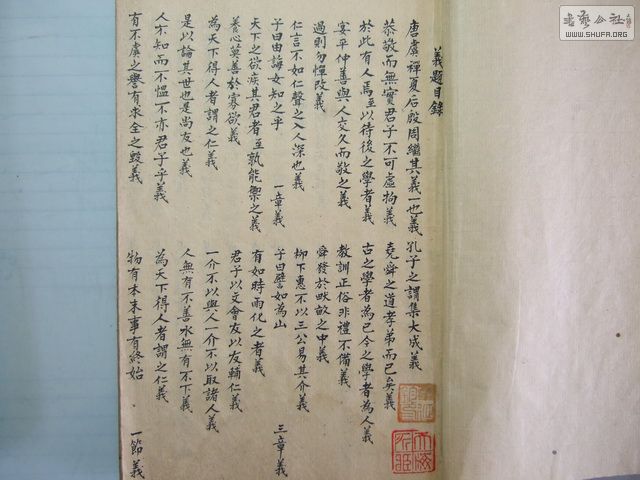 義題目錄
唐虞禪夏后殷周繼其義一也義
孔子之謂集大成義
恭敬而無實君子不可虛拘義
堯舜之道孝弟而已矣義
於此有人焉至以待後之學者義
古之學者為己今之學者為人義
晏平仲善與人交久而敬之義
教訓正俗非禮不備義
過則勿憚改義
舜發於畎畝之中義
仁言不如仁聲之入人深也義
柳下惠不以三公易其介義
子曰由誨女知之乎 一章義
子曰譬如為山 三章義
天下之欲疾其君者至孰能禦之義
有如時雨化之者義
養心莫善於寡欲義
君子以文會友以友輔仁義
為天下得人者謂之仁義
一介不以與人一介不以取諸人義
是以論其世也是尚友也義
人無有不善水無有不下義
人不知而不慍不亦君子乎義
為天下得人者謂之仁義
有不虞之譽有求全之毀義
物有本末事有終始 一節義
書藝公社
WWW.SHUFA.ORG